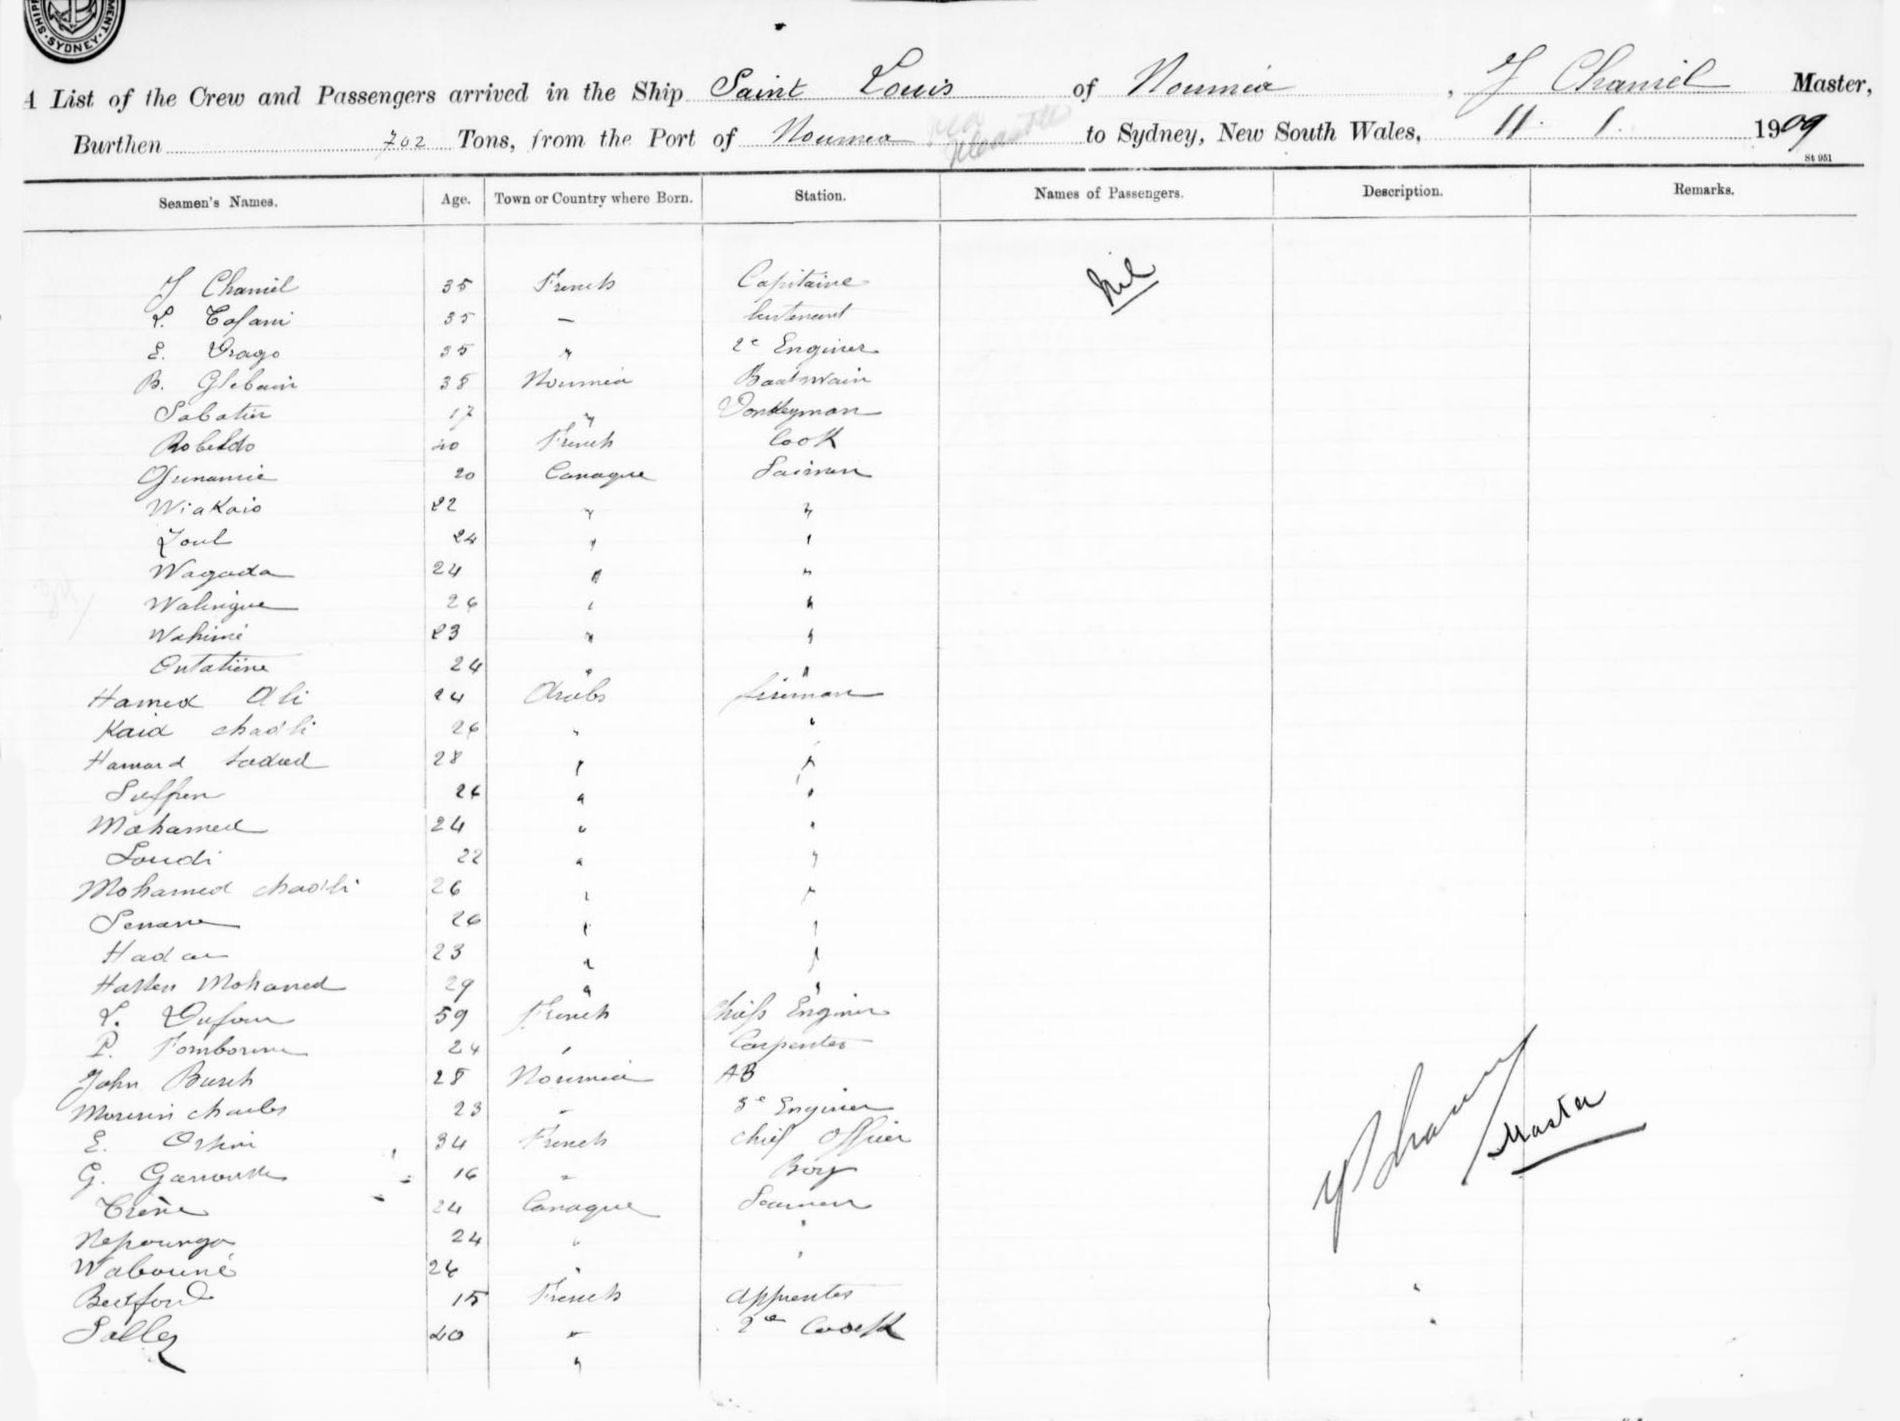 SHIPPING
MENT. SYDNEY.
A List of the Crew and Passengers arrived in the Ship Saint Louis of Noumea, J Chamiel Master,
Burthen 702 Tons, from the Port of Noumea via to Sydney, New South Wales, 11. 1. 1909
St 951
Seamen's Names. Age. Town or Country where Born. Station. Names of Passengers. Description. Remarks.
J Chamiel 35 French Capitaine Nil
L. 35 — lieutenant
E. Drago 35 " 2e Enginer
B. Glebain 38 Noumea Boatswain
Sabatier 17 " Donkeyman
Robeldo 40 French Cook
20 Canaque Saiman
Wiakaio 22 " "
Zoul 24 " "
Wagada 24 " "
Walinigue 26 " "
Wahimé 23 " "
24 " "
Hamed Ali 24 Arabs fireman
Kaid chadli 26 " "
Hamard 28 " "
Suffren 26 " "
Mohamed 24 " "
Soudi 22 " "
Mohamed chadli 26 " "
Senane 26 " "
23 " "
Mohamed 29 " "
L. Dufour 59 French Chief Enginer
P. 24 " Carpenter
John Busch 28 Noumea AB
charles 23 " 3e Enginer
E. Orsini 34 French Chief Officer
G. 16 " Boy
Trène 24 Canaque Seamen
Nepounga 24 " "
Wabouné 26 "
Bedford 15 French
Salles 40 " 2e Cook
"
Master